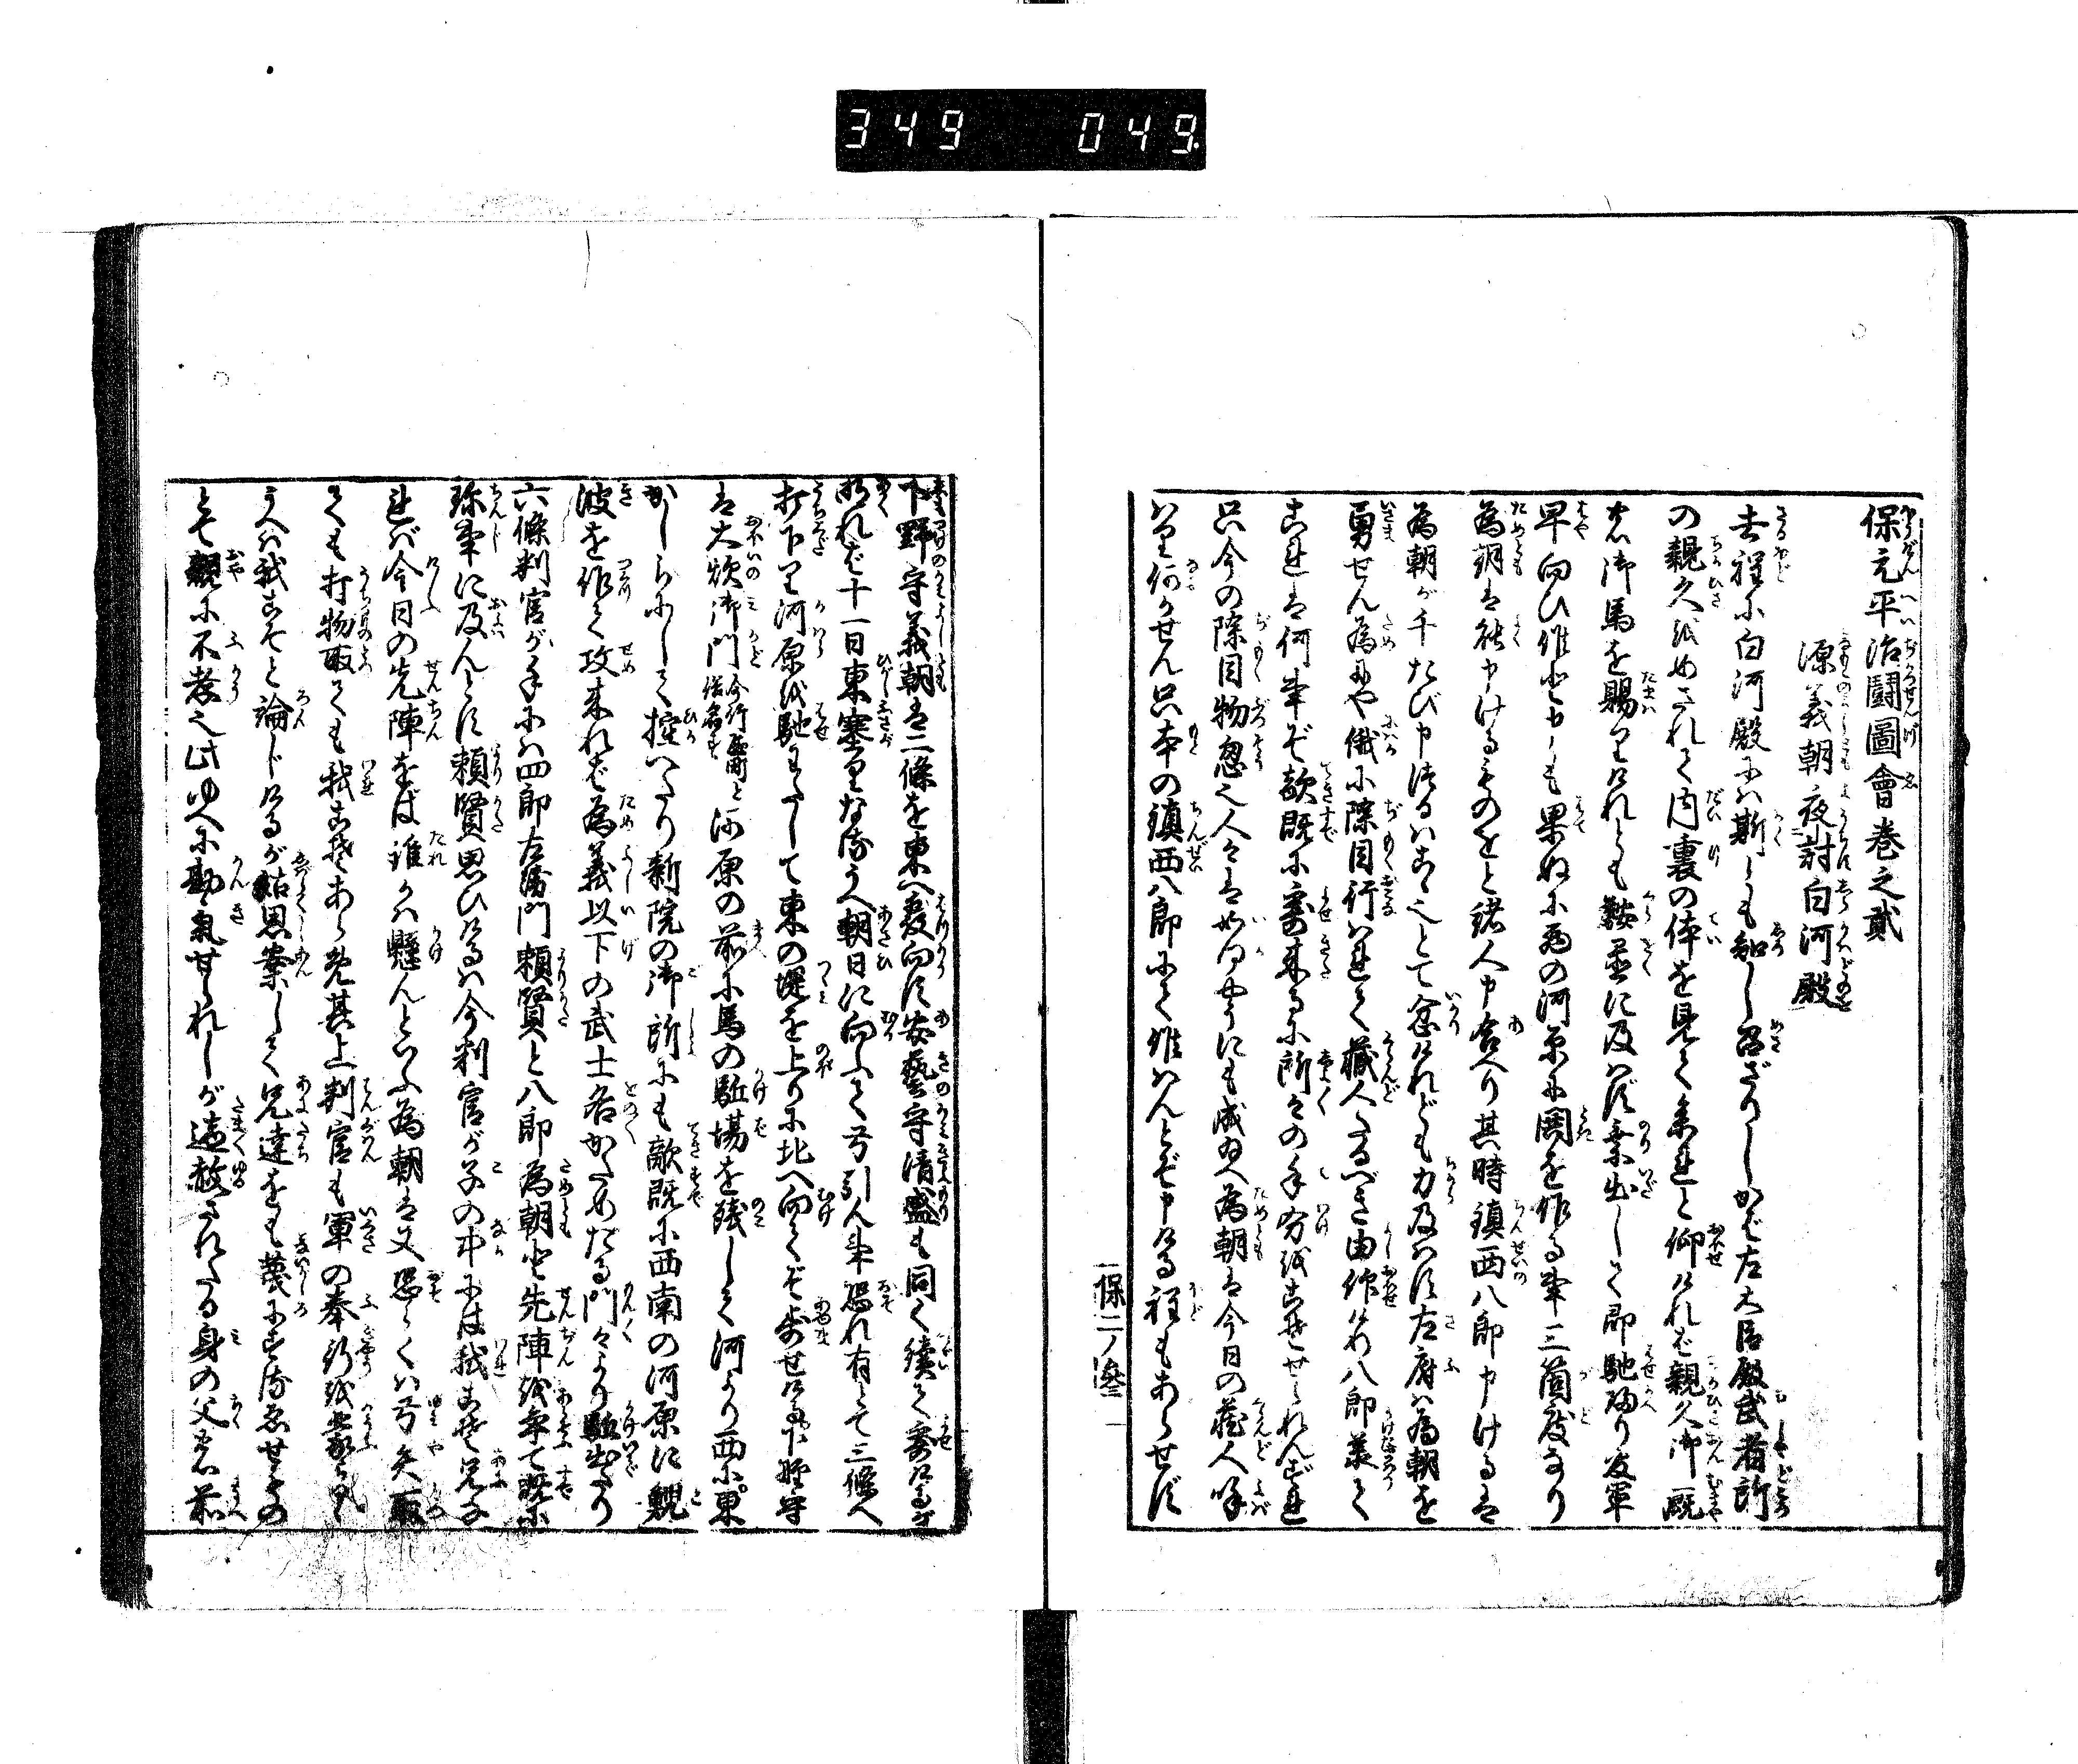 349 049
保元平治闘圖會巻之貳
源義朝夜討白河殿
去程に白河殿にハ斯とも知し召ざりしかば左大臣殿武者所
の親久をめされて内裏の体を見て参れと仰けれバ親久御厩
の御馬を賜り
早向ひ候と申も果ぬに西の河原に閧を作る事三箇度なり
為朝は能申けるものをと諸人申合へり其時鎮西八郎申けるは
為朝が千たび申つるハこゝ之とて忿けれども力及バず左府ハ為朝を
勇せん為にや俄に除目行ハれて蔵人たるべき由仰けれバ八郎
これは何事ぞ敵既に寄来るに所々の手分をこそせられんずれ
只今の除目物忽之人々は如何やうにも成給へ為朝は今日の蔵人
何かせん只本の鎮西八郎にて候ハんとぞ申ける程もあらせず
保二ノ
下野守義朝は二條を東へ發向す安藝守清盛も同く續て寄けるが
明れば十一日東塞りなるうへ朝日に向ふて弓引ん事恐れ有とて三條へ
打下り河原を馳わたして東の堤を上りに北へ向てぞ歩せける下野守
は大炊御門河原の前に馬の駈場を残して河より西に東
かしらにして控へたり新院の御所にも敵既に西南の河原に鯢
波を作て攻来れば為義以下の武士各かためたる門々より駈出たり
六條判官が手にハ四郎左衛門頼賢と八郎為朝と先陣を争て既に
珎事に及んとす頼賢思ひけるハ今判官が子の中には我こそ兄よ
されば今日の先陣をば誰かハ懸んといふ為朝は又恐くハ弓矢取
ても打物取ても我こそあらめ其上判官も軍の奉行を
うへハ我こそと論じけるが姑思案して兄達をも蔑にするゑせもの
とて親に不孝之此ゆへに勘氣せられしが適赦されたる身の父の前